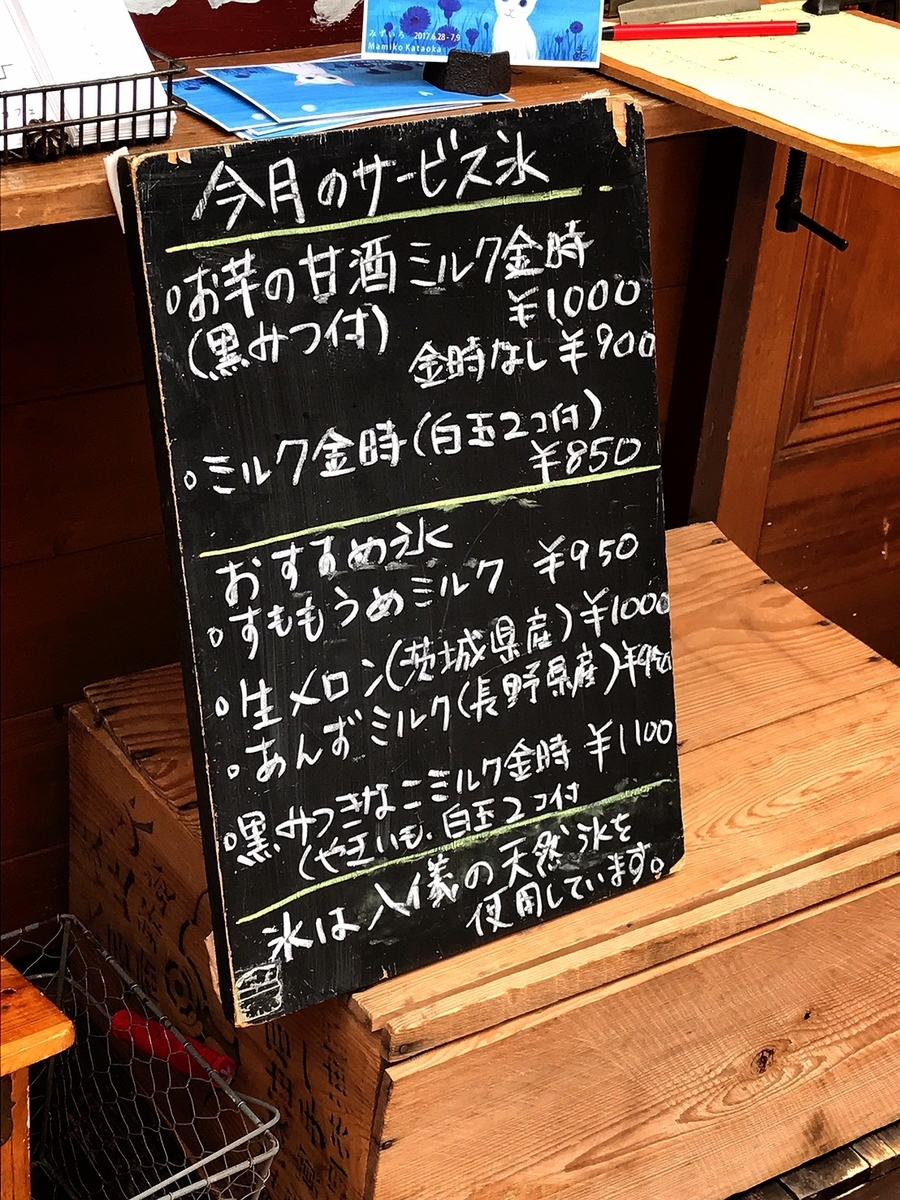 みずいろ 2017.6.28-7.9
Mamiko Kataoka
今月のサービス氷
お芋の甘酒ミルク金時
¥1000
(黒みつ付)
金時なし ¥900
ミルク金時(白玉2コ付)
¥850
おすすめ氷
すももうめミルク ¥950
生メロン(茨城県産) ¥1000
あんずミルク(長野県産) ¥950
黒みつきなこミルク金時 ¥1100
(やきいも、白玉2コ付
氷は八儀の天然氷を
使用しています。